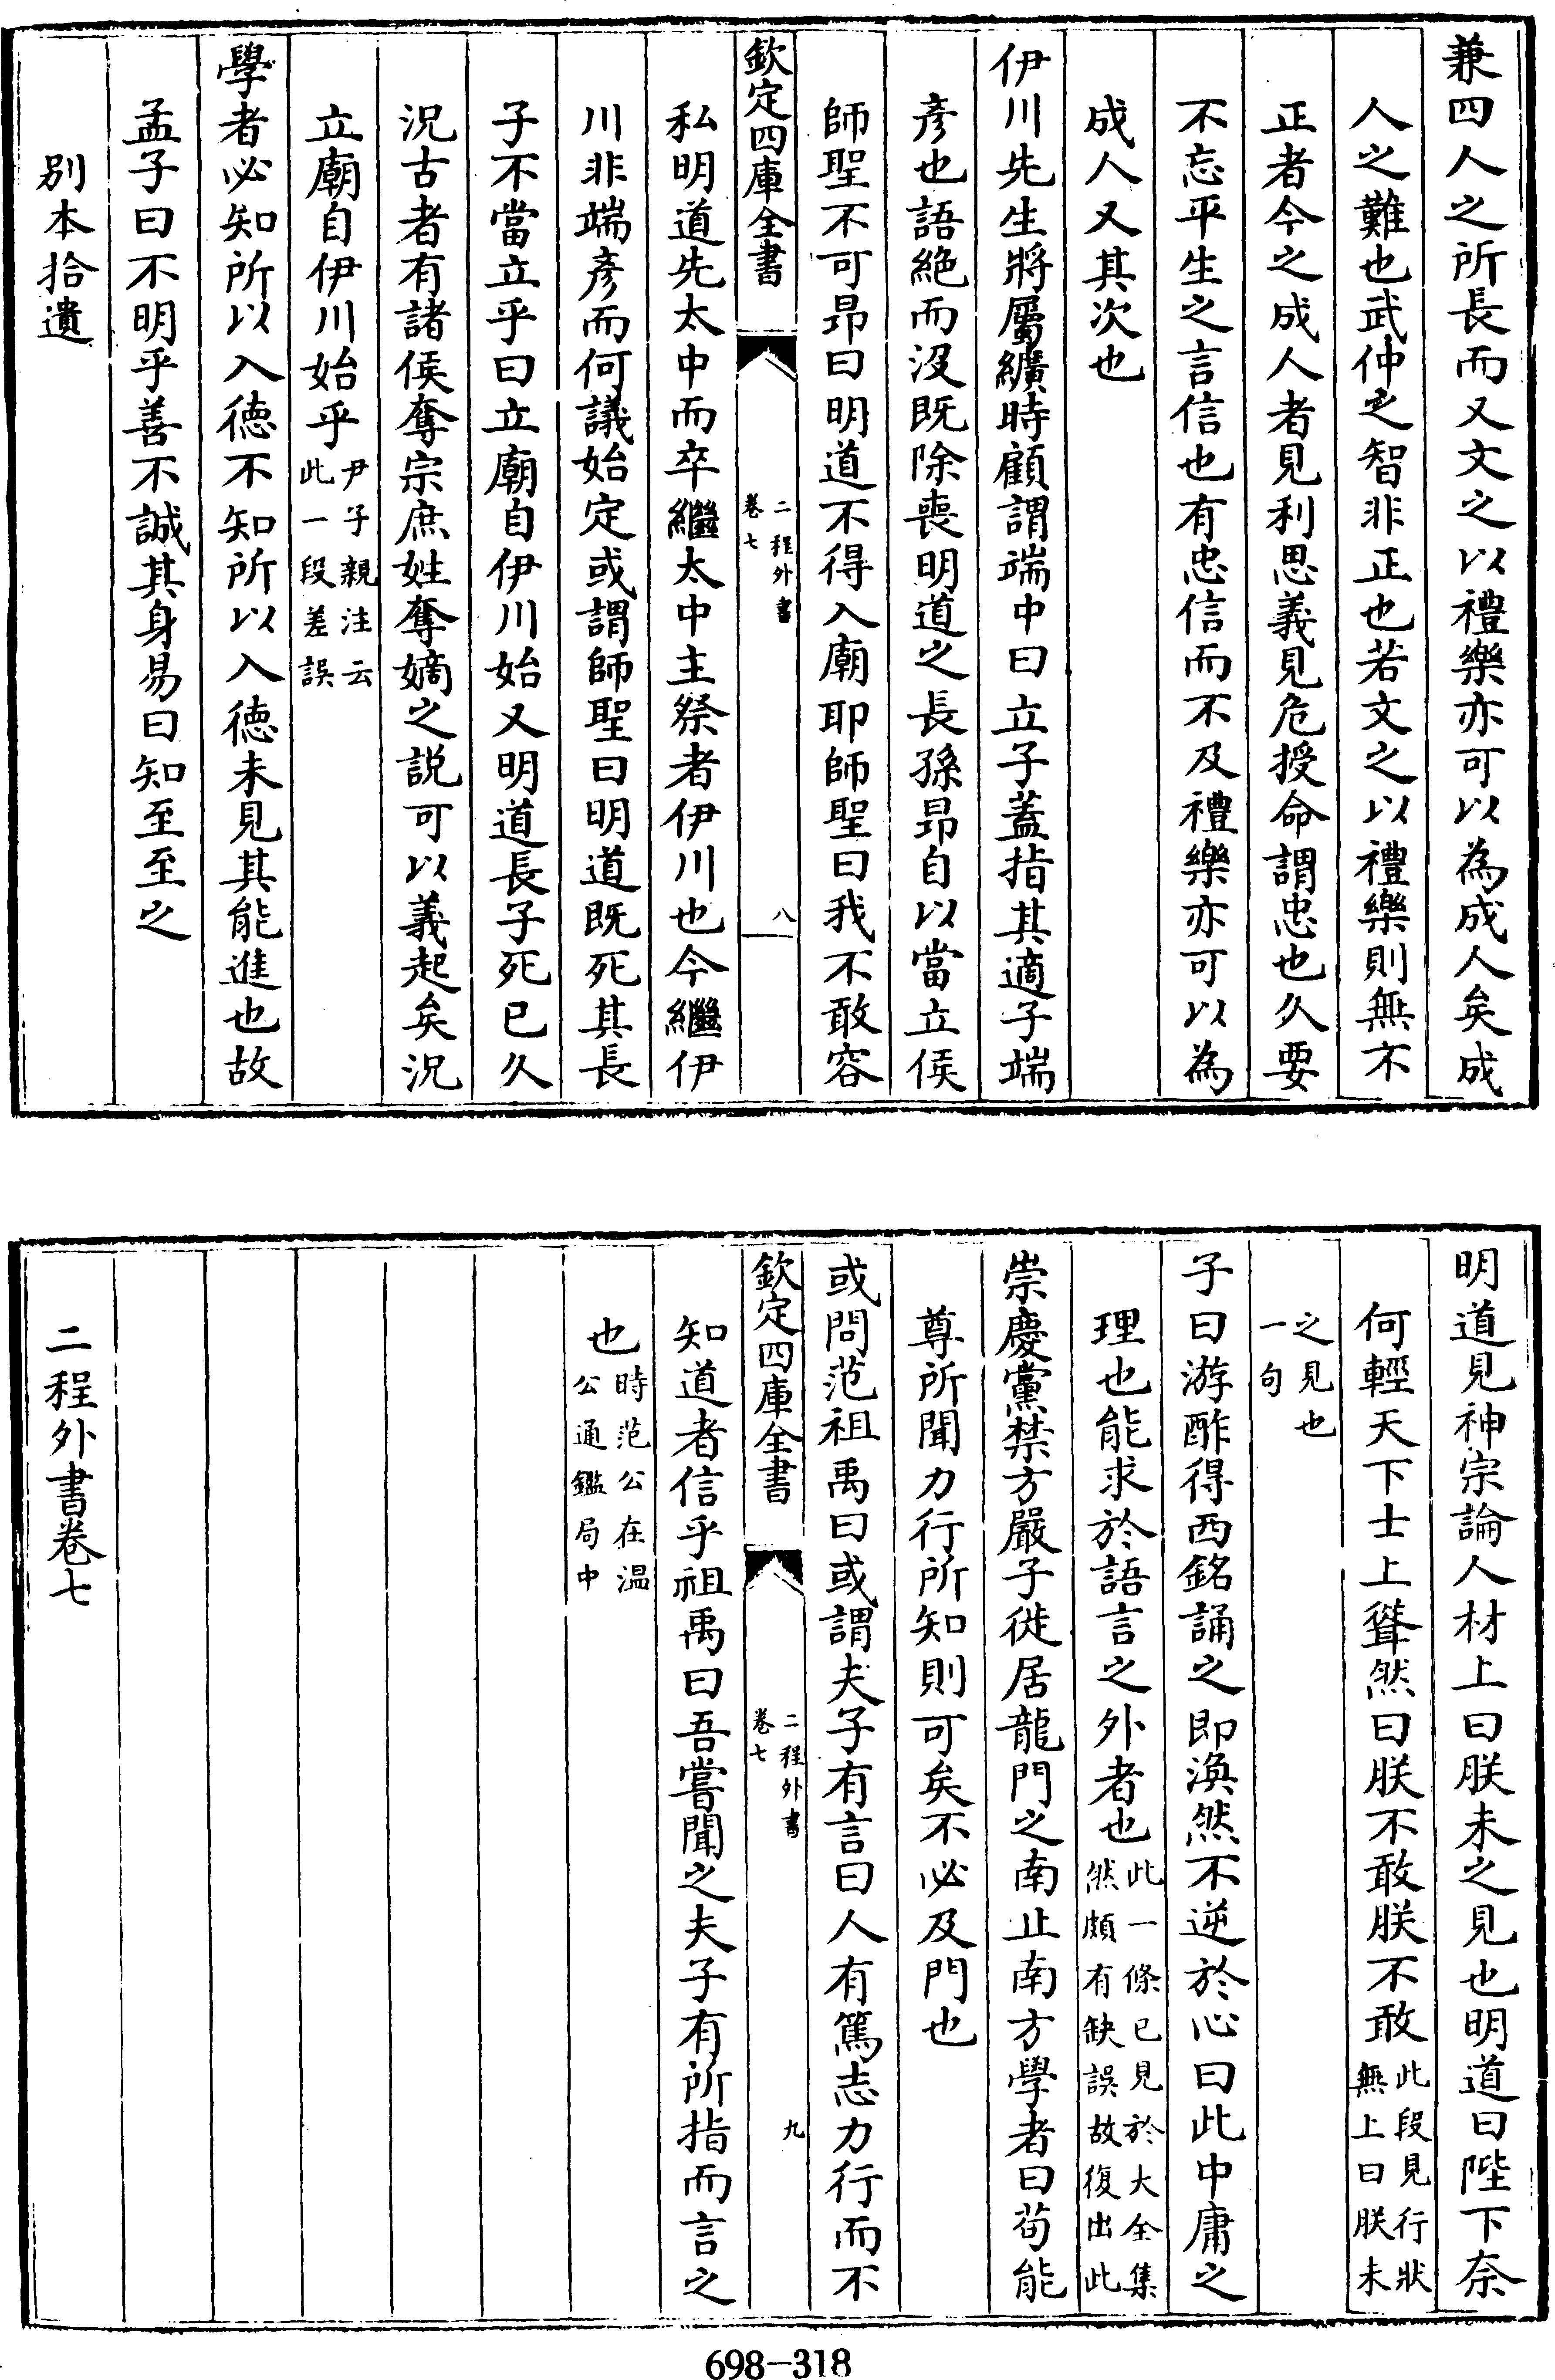 兼四人之所長而又文之以禮樂亦可以為成人矣成
人之難也武仲之智非正也若文之以禮樂則無不
正者今之成人者見利思義見危授命謂忠也久要
不忘平生之言信也有忠信而不及禮樂亦可以為
成人又其次也
伊川先生將屬纊時顧謂端中曰立子蓋指其適子端
彥也語絶而沒既除喪明道之長孫昂自以當立侯
師聖不可昂曰明道不得入廟耶師聖曰我不敢容
欽定四庫全書
二程外書
卷七
八
私明道先太中而卒繼太中主祭者伊川也今繼伊
川非端彥而何議始定或謂師聖曰明道既死其長
子不當立乎曰立廟自伊川始又明道長子死已久
況古者有諸侯奪宗庶姓奪嫡之説可以義起矣況
立廟自伊川始乎尹子親注云
此一段差誤
學者必知所以入德不知所以入德未見其能進也故
孟子曰不明乎善不誠其身易曰知至至之
別本拾遺
明道見神宗論人材上曰朕未之見也明道曰陛下奈
何輕天下士上聳然曰朕不敢朕不敢此段見行狀
無上曰朕未
之見也
一句
子曰游酢得西銘誦之即渙然不逆於心曰此中庸之
理也能求於語言之外者也此一條已見於大全集
然頗有缺誤故復出此
崇慶黨禁方嚴子徙居龍門之南止南方學者曰苟能
尊所聞力行所知則可矣不必及門也
或問范祖禹曰或謂夫子有言曰人有篤志力行而不
欽定四庫全書
二程外書
卷七
九
知道者信乎祖禹曰吾嘗聞之夫子有所指而言之
也時范公在温
公通鑑局中
二程外書卷七
698-318